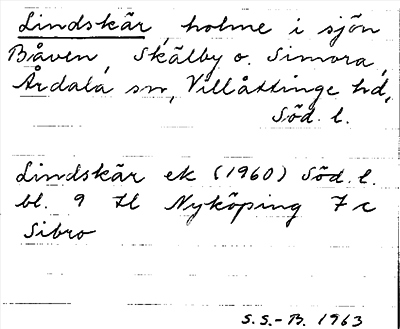 Lindskär, holme i sjön
Båven, Skälby o. Simora,
Årdala sn, Villåttinge hd,
Söd. l.
Lindskär ek (1960) Söd. l.
bl. 9 Hl Nyköping 7 c
Sibro
S.S.-B. 1963